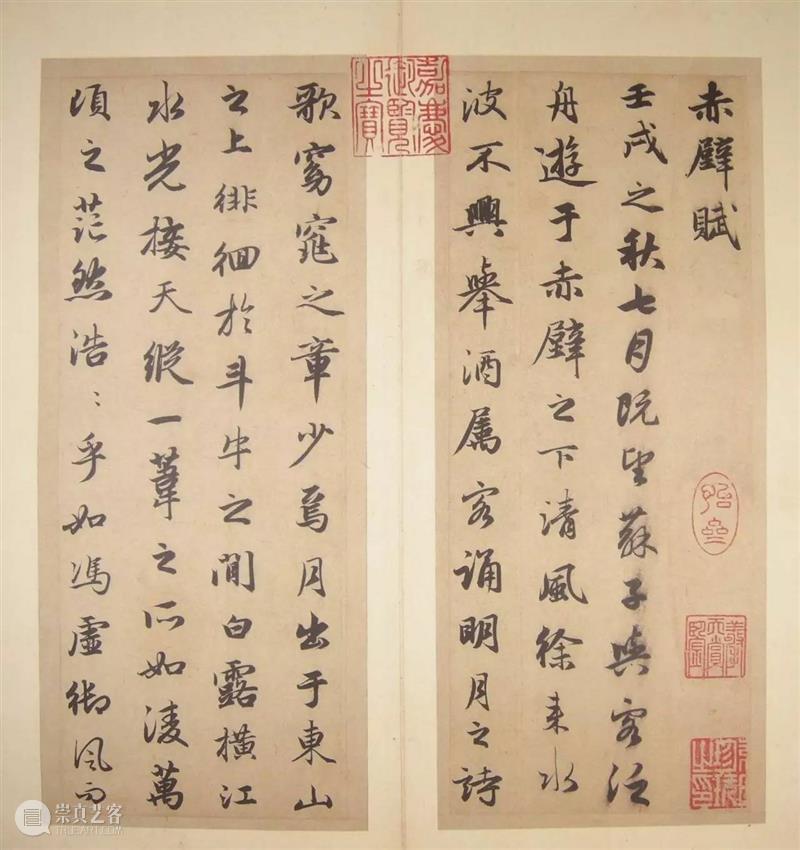 赤壁賦
壬戌之秋七月既望蘇子與客泛
舟遊于赤壁之下清風徐来水
波不興舉酒属客誦明月之詩
嘉慶御覽之寶
歌窈窕之章少焉月出于東山
之上徘徊於斗牛之間白露横江
水光接天縱一葦之所如凌萬
頃之茫然浩〻乎如馮虛御風而
崇真艺客
TRUEART.COM